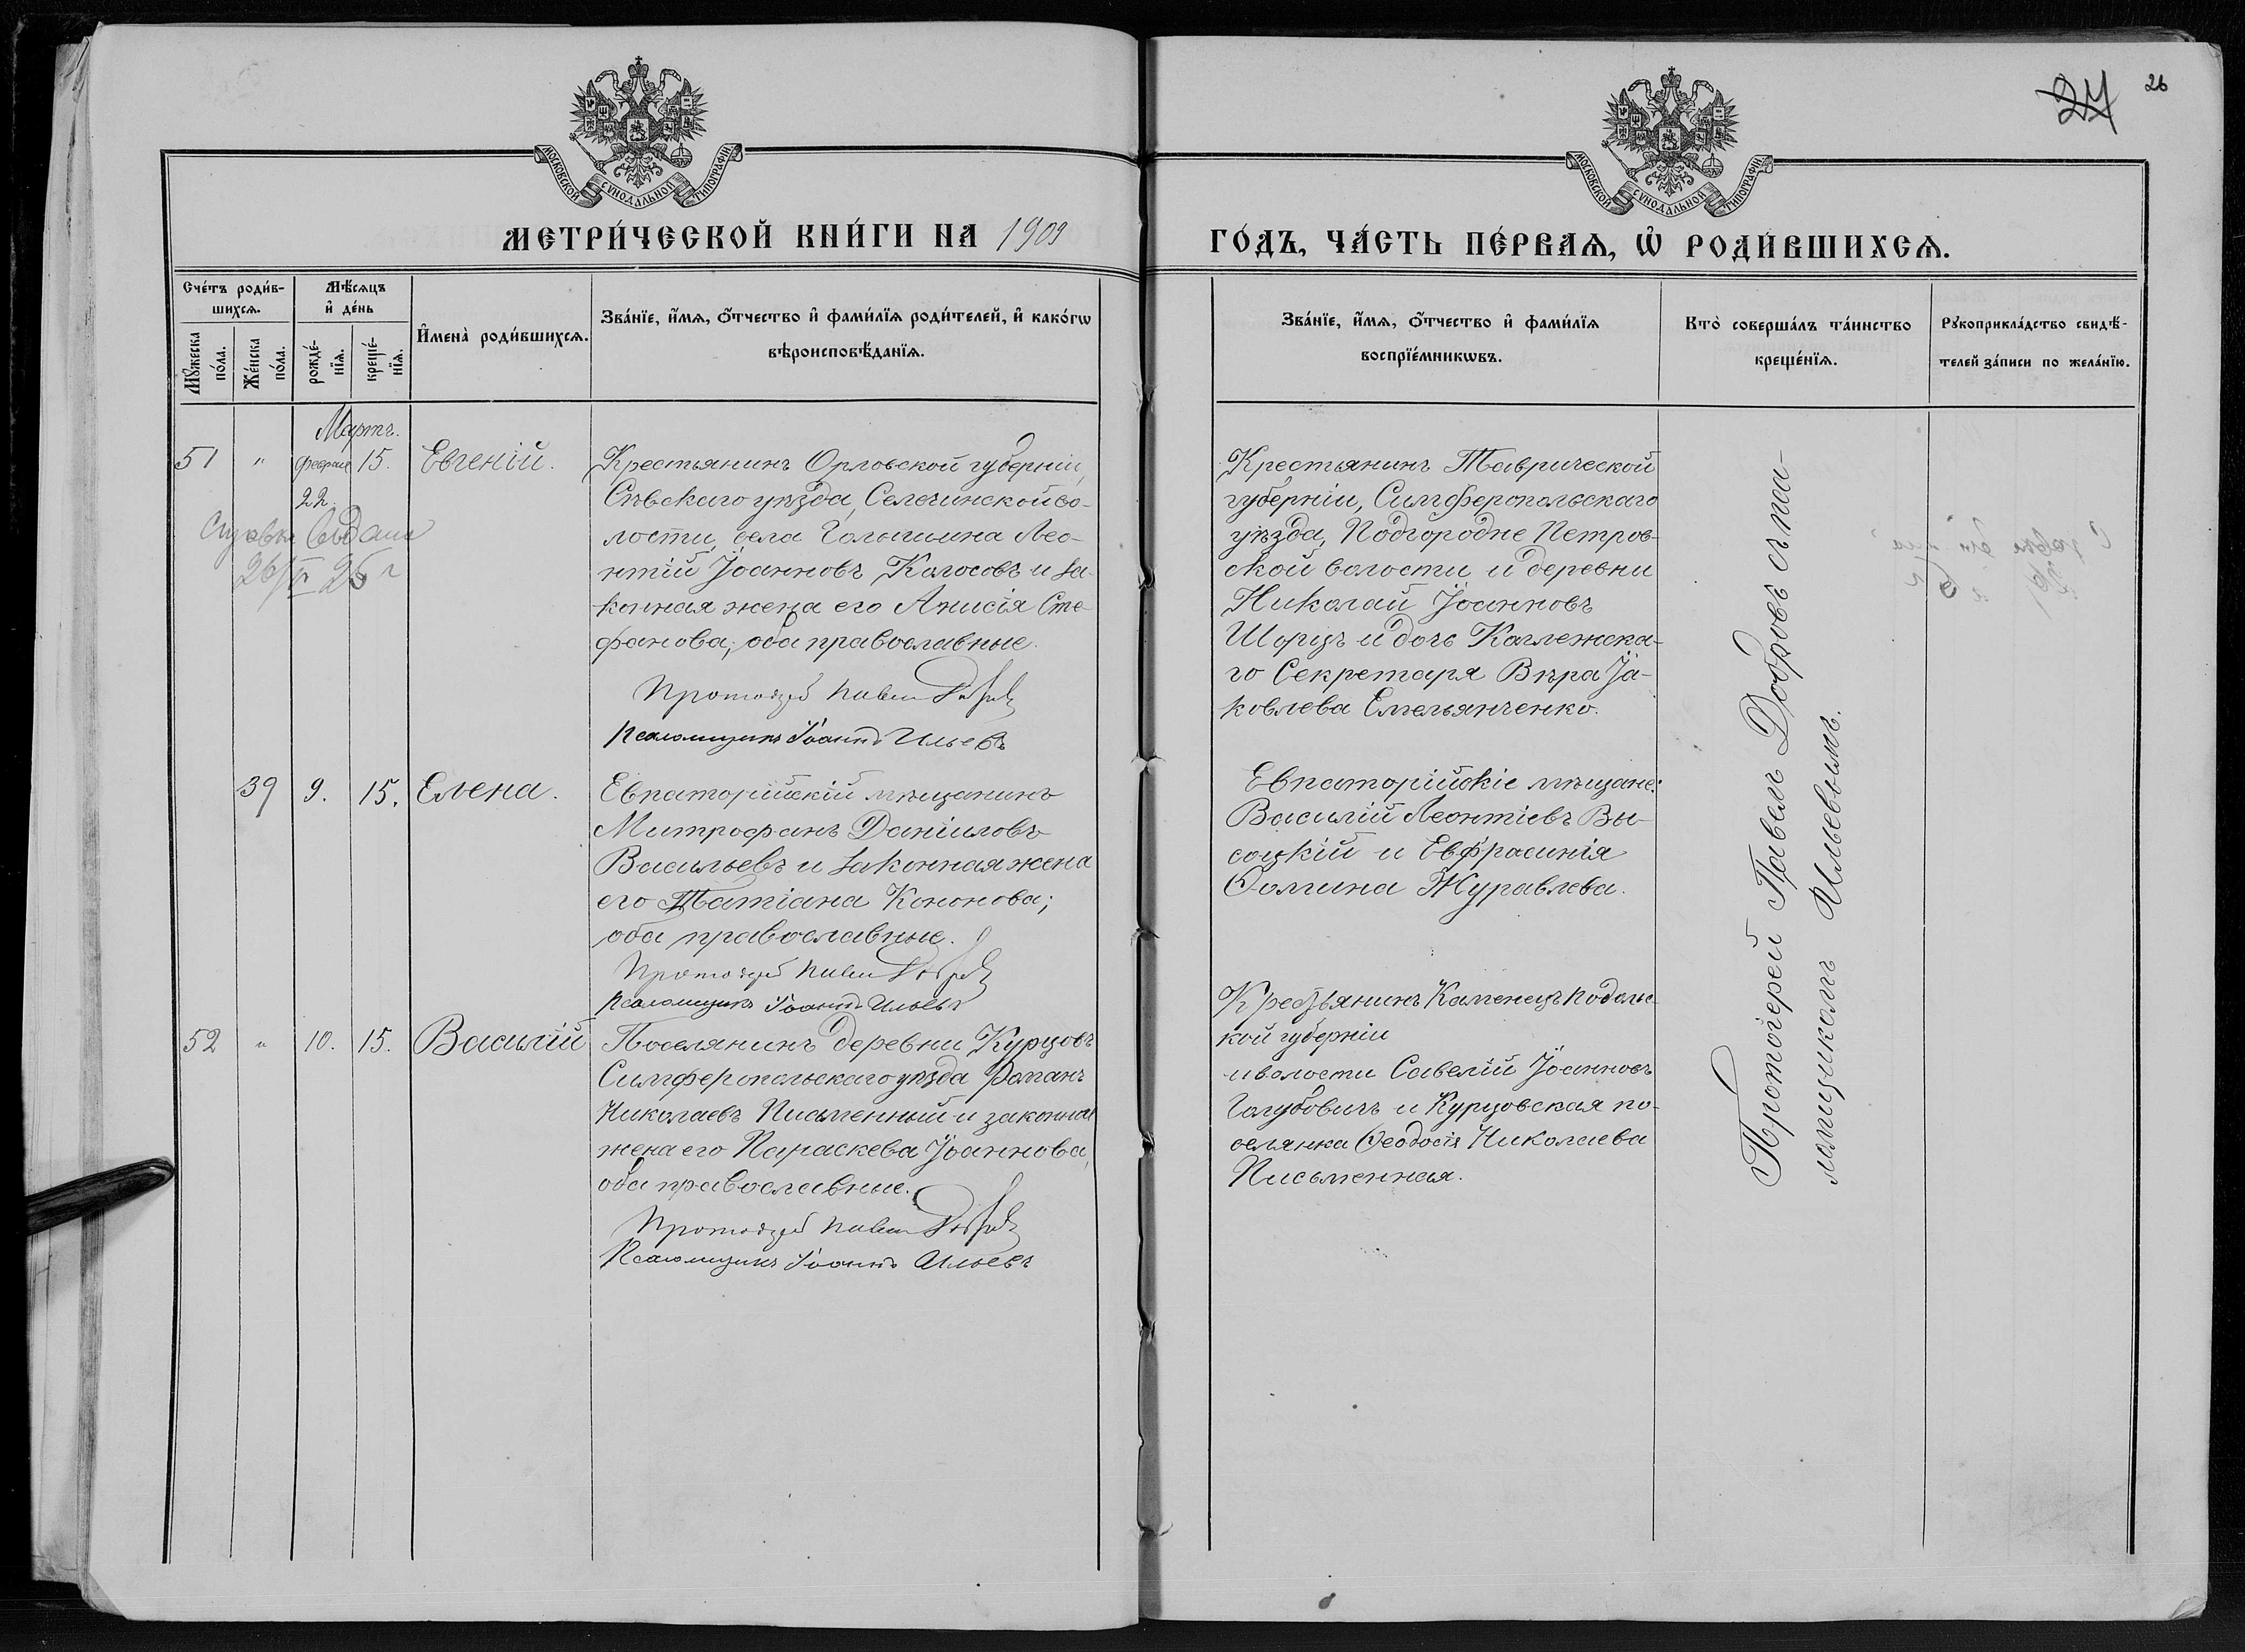 26
27
МОСКОВСКОЙ СѴНОДАЛЬНОЙ ТИПОГРАФІИ
МОСКОВСКОЙ СѴНОДАЛЬНОЙ ТИПОГРАФІИ
МЕТРИ́ЧЕСКОЙ КНИ́ГИ НА 1909
ГО́ДЪ, ЧА́СТЬ ПЕ́РВАѦ, Ѡ҆ РОДИ́ВШИХСѦ.
Сче́тъ роди́в-
шихсѧ.
Мꙋ́жеска
по́ла.
Же́нска
по́ла.
Мѣ́сѧцъ
и҆ де́нь
рожде́-
нїѧ.
креще́-
нїѧ.
И҆мена̀ роди́вшихсѧ.
Зва́нїе, и҆́мѧ, ѻ҆́тчество и҆ фами́лїѧ роди́телей, и҆ како́гѡ
вѣроисповѣ́данїѧ.
Зва́нїе, и҆́мѧ, ѻ҆́тчество и҆ фами́лїѧ
воспрїе́мникѡвъ.
Кто̀ соверша́лъ та́инство
креще́нїѧ.
Рꙋкоприкла́дство свидѣ́-
телей за́писи по жела́нїю.
Мартъ.
51 " феврал 15. Евгеній.
22.
Справка выдана
26/II 26 г
Крестьянинъ Орловской губерніи,
Сѣвскаго уѣзда, Селечинской во-
лости, села Голышина Лео-
нтій Іоанновъ Колосовъ и за-
конная жена его Анисія Сте-
фанова; оба православные.
Протоіерей Павелъ Добровъ
Псаломщикъ Іоаннъ Ильевъ
Крестьянинъ Таврической
губерніи, Симферопольскаго
уѣзда, Подгородне Петров-
ской волости и деревни
Николай Іоанновъ
Шорцъ и дочь Коллежска-
го Секретаря Вѣра Іа-
ковлева Емельянченко.
39 9. 15. Елена.
Евпаторійскій мѣщанинъ
Митрофанъ Даніиловъ
Васильевъ и законная жена
его Татіана Кононова;
оба православные.
Протоіерей Павелъ Добровъ
Псаломщикъ Іоаннъ Ильевъ
Евпаторійскіе мѣщане:
Василій Леонтіевъ Вы-
соцкій и Евфрасинія
Ѳомина Журавлева.
52 " 10. 15. Василій
Поселянинъ деревни Курцовъ
Симферопольскаго уѣзда Романъ
Николаевъ Письменный и законная
жена его Параскева Іоаннова,
оба православные.
Протоіерей Павелъ Добровъ
Псаломщикъ Іоаннъ Ильевъ
Крестьянинъ Каменецъ Подольс-
кой губерніи
и волости Савелій Іоанновъ
Голубовичъ и Курцовская по-
селянка Ѳеодосія Николаева
Письменная.
Протоіерей Павелъ Добровъ съ пса-
ломщикомъ Ильевымъ.